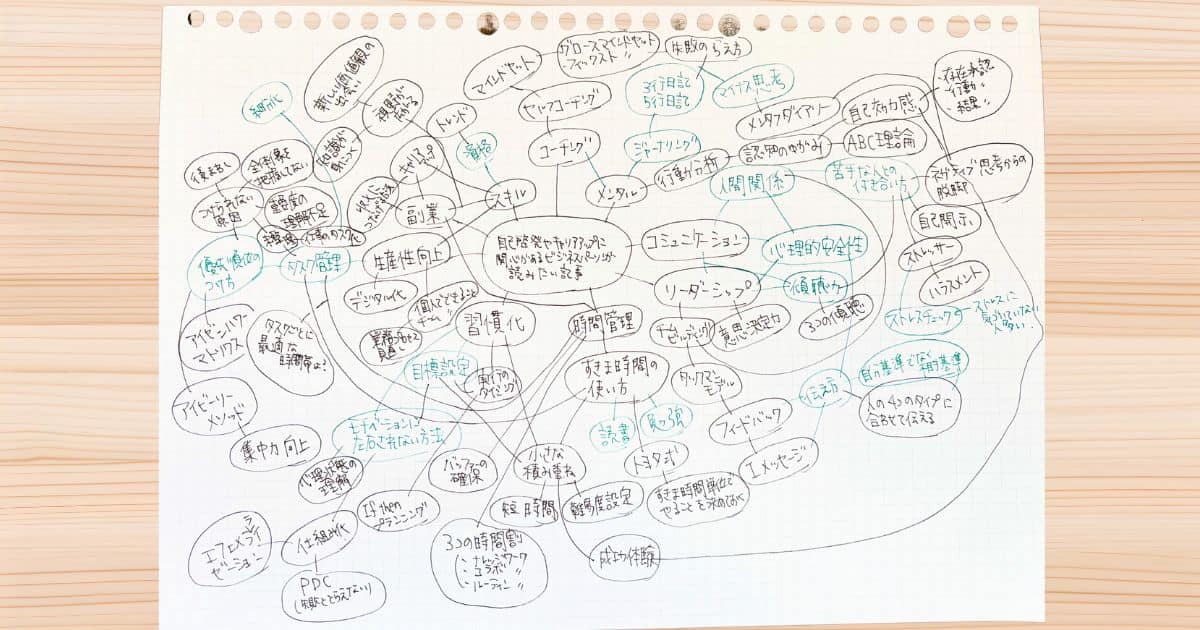 マインドセット
グロースマインドセット
フィックスト 〃
失敗のとらえ方
新しい価値観の
出会い
視野が
広がる
セルフコーチング
3行日記
5行日記
マイナス思考
存在承認
行動 〃
結果 〃
細分化
トレンド
メンタルダイアリー
自己効力感
知識が
身につく
資格
コーチング
ジャーナリング
認知のゆがみ
ABC理論
後まわし
全体像を
把握してない
キャリアアップ
行動分析
人間関係
苦手な人との
付き合い方
ネガティブ思考からの
脱却
つけられない
原因
重要度の
理解不足
副業
スキル
メンタル
自己開示
仕事のタスク化
優先順位の
つけ方
タスク管理
生産性向上
自己啓発やキャリアアップに
関心があるビジネスパーソンが
読みたい記事
コミュニケーション
心理的安全性
ストレッサー
デジタル化
個人でできること
チーム 〃
リーダーシップ
傾聴力
ハラスメント
アイゼンハワー
マトリクス
タスクごとに
最適な
時間帯は?
習慣化
時間管理
チームビルディング
意思決定力
3つの傾聴
ストレスチェック
ストレスに
気づいていない
人多い
目標設定
実行の
タイミング
すきま時間の
使い方
タックマン
モデル
伝え方
アイビーリー
メソッド
モチベーションに
左右されない方法
読書
勉強
フィードバック
人の4つのタイプに
合わせて伝える
集中力向上
心理状態の
理解
バッファーの
確保
小さな
積み重ね
トヨタ式
Iメッセージ
If then
プランニング
短時間
難易度設定
すきま時間単位で
やることを決めておく
エフェメラライ
ゼーション
仕組み化
3つの時間割
成功体験
PDC
(失敗ととらえない)